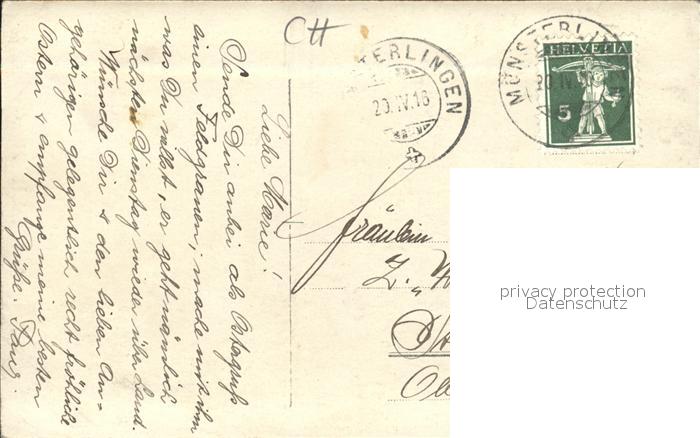 CH
MÜNSTERLINGEN
20.IV.16
MÜNSTERLIN
20.IV.
HELVETIA
5
Liebe Marie!
Sende Dir anbei als Ostergruß
einen Feldgrauen; mache mit ihm
was Du willst, er geht nämlich
nächsten Dienstag wieder über Land.
Wünsche Dir & den lieben An-
gehörigen gelegentlich recht fröhliche
Ostern & empfange meine besten
Grüße.
Fräulein
Z. "
privacy protection
Datenschutz